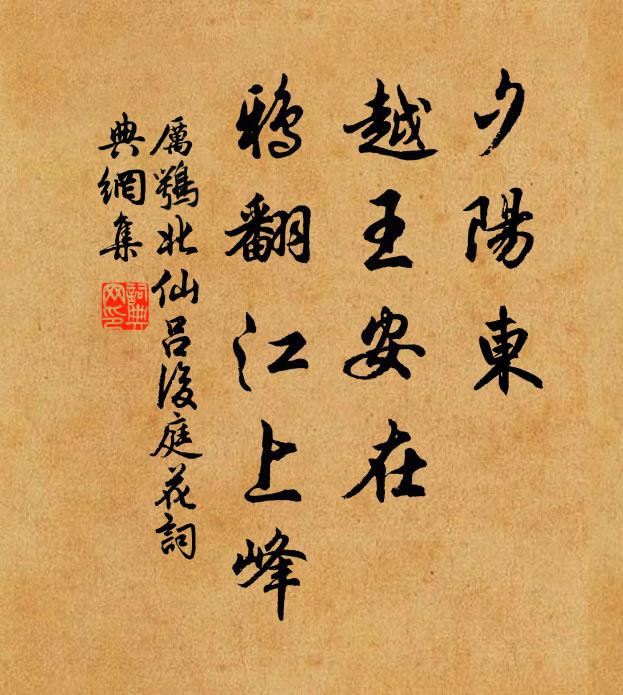 夕陽東
越王安在
鴉翻江上峰
厲鶚北仙呂後庭花詞
典網集
詞典網印